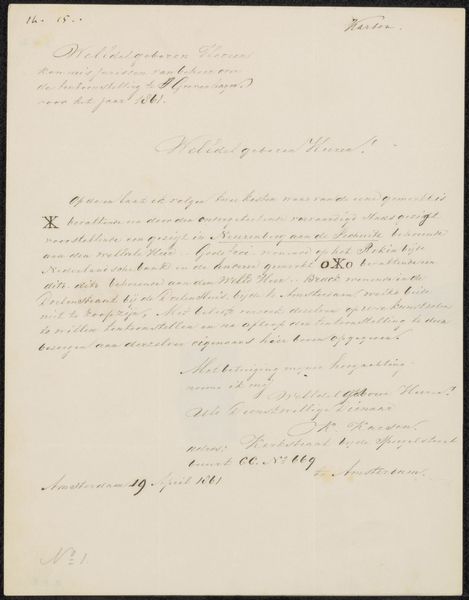 14. 15.
Karsen.
Weledel geboren Heeren
van beheer over
de tentoonstelling te s'Gravenhage
voor het jaar 1861.
Weledel geboren Heeren!
Op dezen laat ik volgen twee kisten waar van de eene gemerkt is
bevattende een door den ongeteekende vervaardigd Stads gezigt
voorstellende een gezigt in Neurenberg aan de Pegnitz behoorende
aan den weledele Heer wonende op het Rokin bij de
Nederlandsche bank en de anderen gemerkt oXo bevattende een
dito dito behoorende aan den WelEd Heer Brack wonende in de
Doelenstraat bij de te Amsterdam, welke beide
niet te koop zijn, Met beleefd verzoek dezelven op uwe
te willen tentoonstellen en na afloop der tentoonstelling te doen
bezorgen aan derzelver eigenaars hier boven opgegeven.
Met betuiging mijner hoogachting
noeme ik mij
Weledel geboren Heeren!
UEd Dienstwillige Dienaar
K. Karsen.
adres: Kerkstraat bij de Spiegelstraat
buurt CC. No 669
te Amsterdam.
Amsterdam 19 April 1861
No 1.